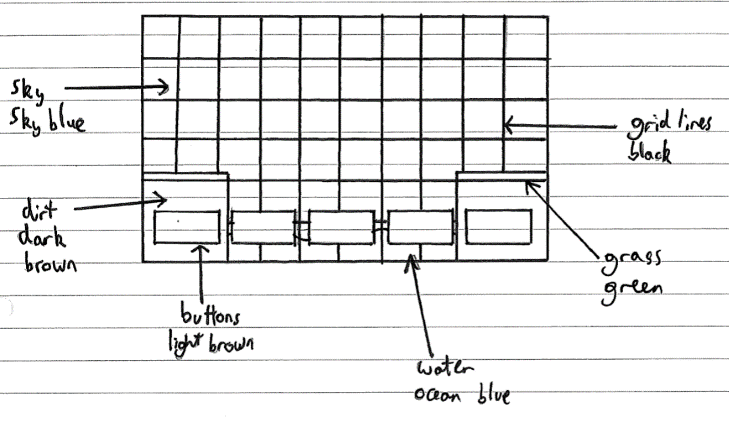 sky
sky blue
grid lines
black
dirt
dark
brown
grass
green
buttons
light brown
water
ocean blue